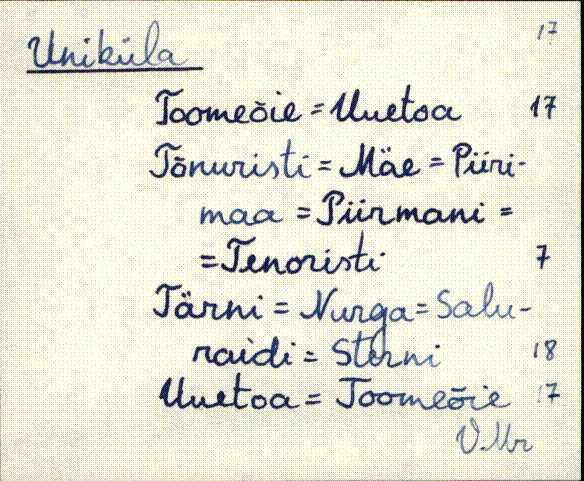 17
Uniküla
Toomeõie = Uuetoa 17
Tõnuristi = Mäe = Piiri-
maa = Piirmani =
= Tenoristi 7
Tärni = Nurga = Salu-
raidi = Sterni 18
Uuetoa = Toomeõie 17
V.Mr